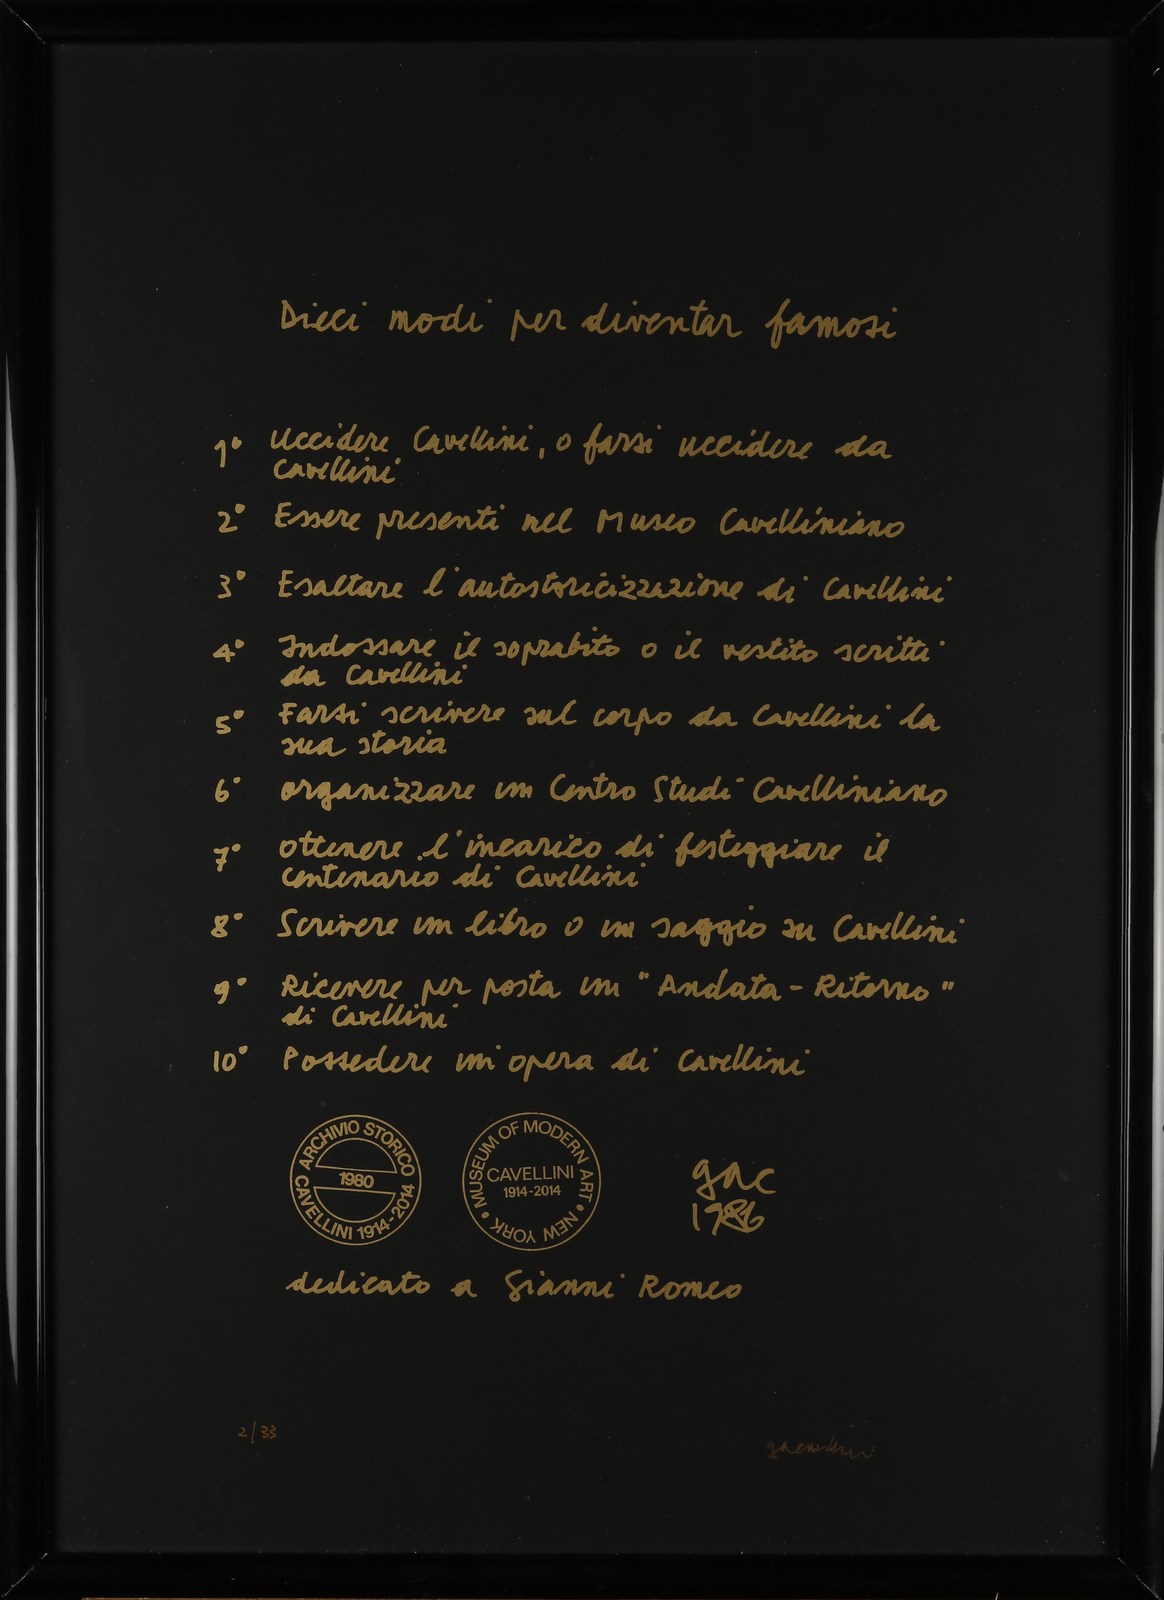 Dieci modi per diventar famosi
1° Uccidere Cavellini, o farsi uccidere da
Cavellini
2° Essere presenti nel Museo Cavelliniano
3° Esaltare l'autostoricizzazione di Cavellini
4° Indossare il soprabito o il vestito scritti
da Cavellini
5° Farsi scrivere sul corpo da Cavellini la
sua storia
6° organizzare un Centro Studi Cavelliniano
7° ottenere l'incarico di festeggiare il
centenario di Cavellini
8° Scrivere un libro o un saggio su Cavellini
9° Ricevere per posta un "Andata - Ritorno"
di Cavellini
10° Possedere un'opera di Cavellini
ARCHIVIO STORICO
1980
CAVELLINI 1914-2014
MUSEUM OF MODERN ART • NEW YORK •
CAVELLINI
1914-2014
gac
1986
dedicato a Gianni Romeo
2/33
gacavellini